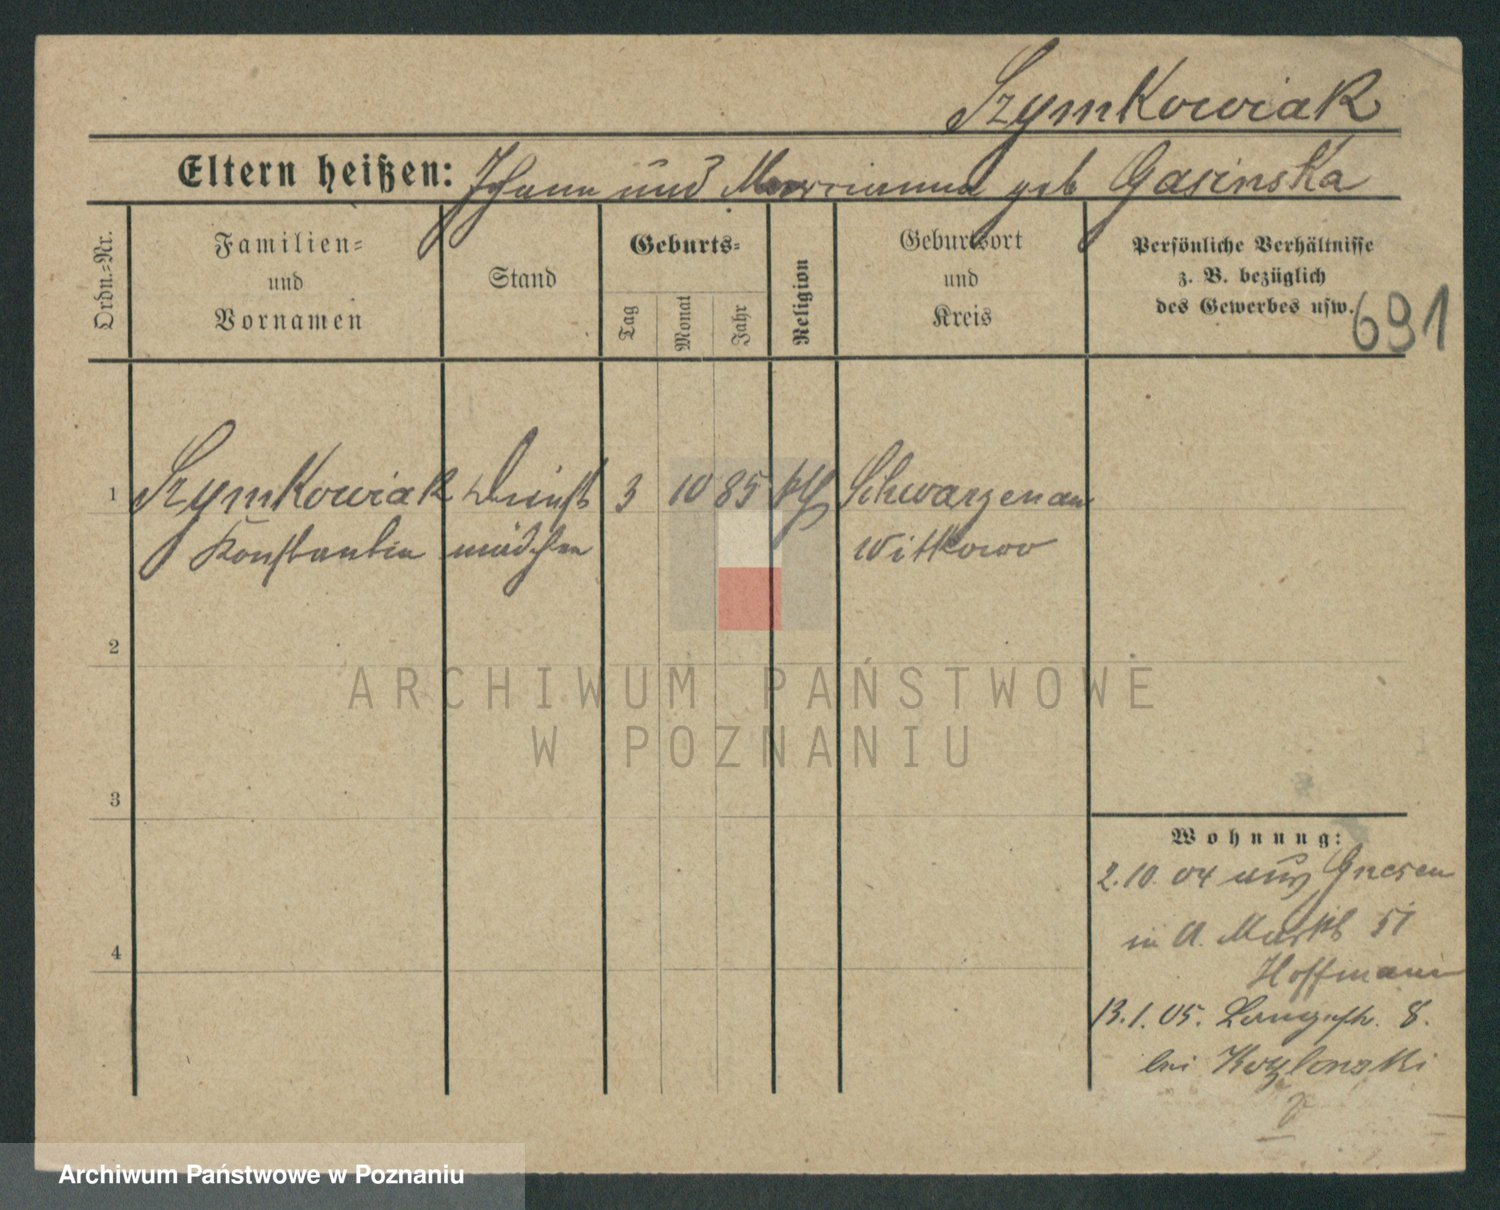 Szymkowiak
Eltern heißen: Johann und Marianna geb Gasinska
Ordn.=Nr.
Familien=
und
Vornamen
Stand
Geburts=
Tag
Monat
Jahr
Religion
Geburtsort
und
Kreis
Persönliche Verhältnisse
z. B. bezüglich
des Gewerbes usw.
691
1 Szymkowiak Dienst 3 10 85 kth Schwarzenau
Konstantia mädchen Witkowo
2
3
4
Wohnung:
2.10.04 aus Gnesen
in A. Markt 51
Hoffmann
13.1.05. Langestr. 8.
bei
ARCHIWUM PAŃSTWOWE
W POZNANIU
Archiwum Państwowe w Poznaniu